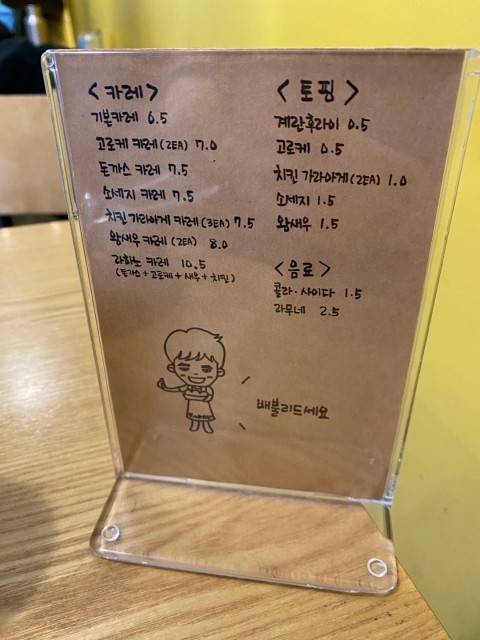 <카레>
기본카레 6.5
고로케 카레(2EA) 7.0
돈까스 카레 7.5
소세지 카레 7.5
치킨 가라아게 카레(3EA) 7.5
왕새우 카레(2EA) 8.0
라하노 카레 10.5
(돈가스+고로케+새우+치킨)
<토핑>
계란후라이 0.5
고로케 0.5
치킨 가라아게(2EA) 1.0
소세지 1.5
왕새우 1.5
<음료>
콜라·사이다 1.5
라무네 2.5
배불리드세요